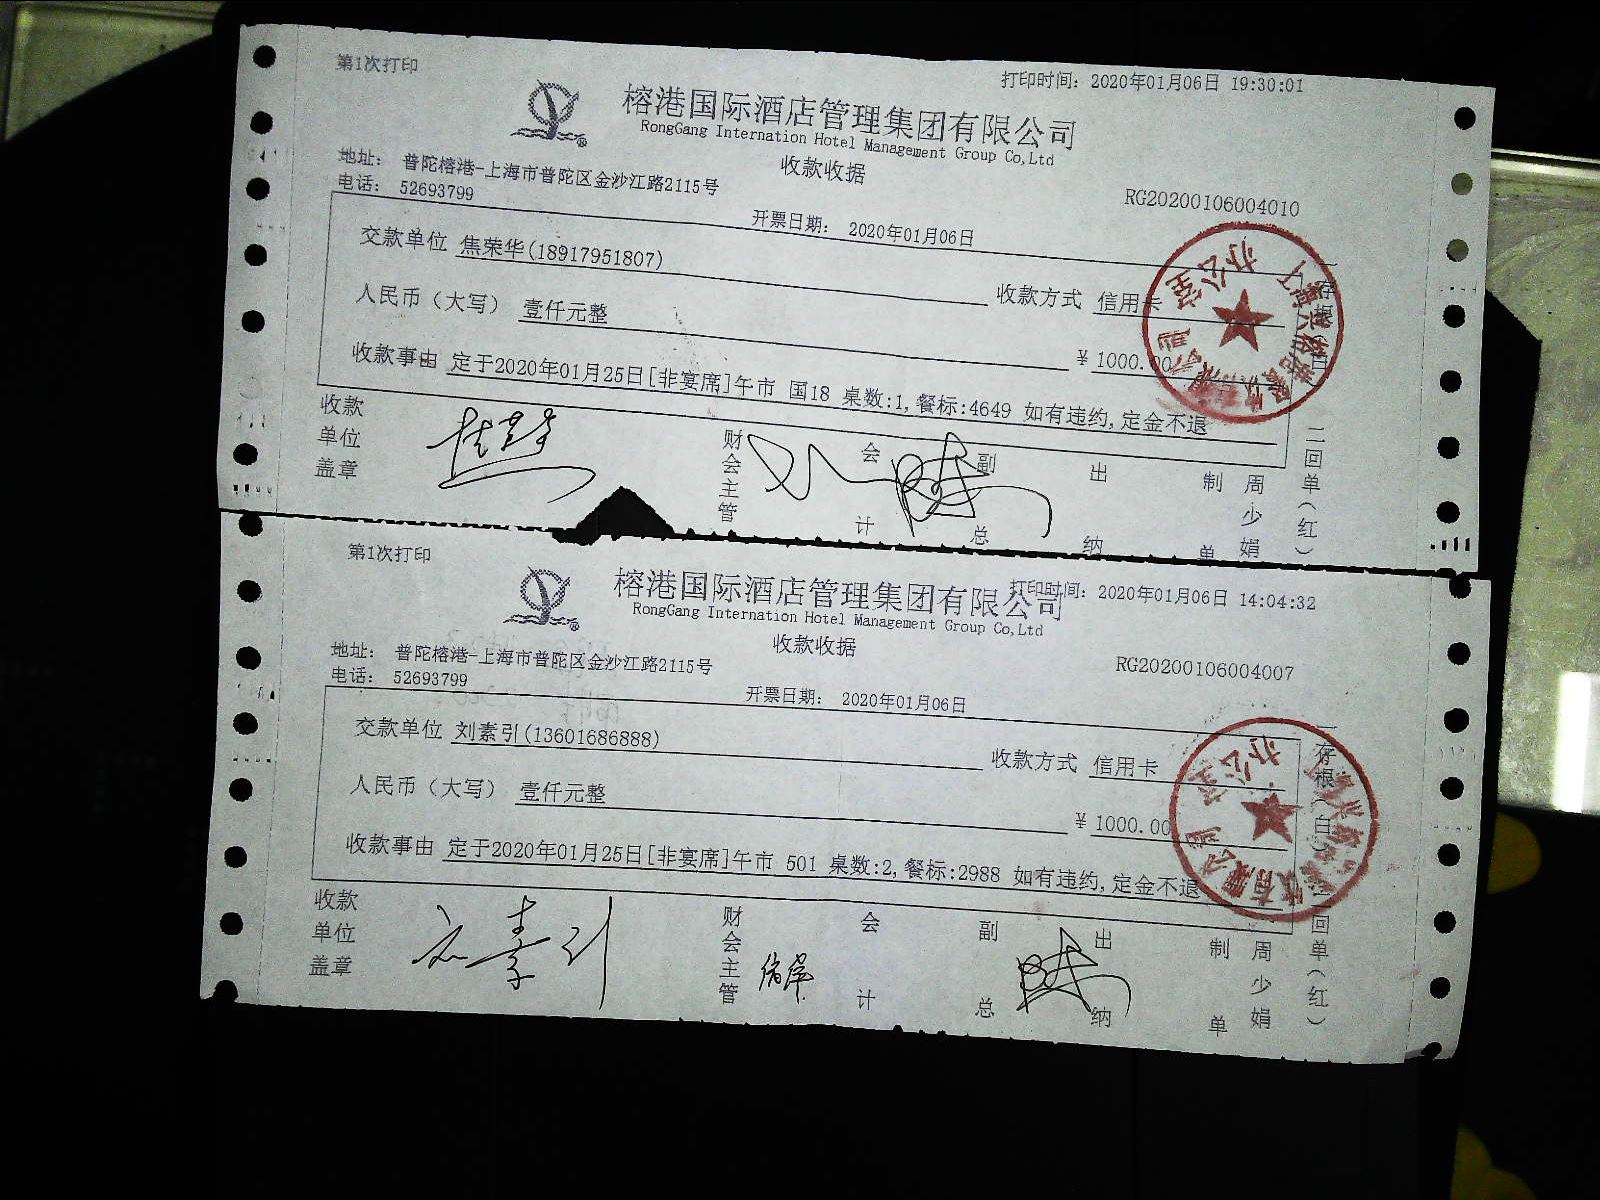 第1次打印
打印时间: 2020年01月06日 19:30:01
榕港国际酒店管理集团有限公司
RongGang Internation Hotel Management Group Co,Ltd
收款收据
地址: 普陀榕港-上海市普陀区金沙江路2115号
电话: 52693799
RG20200106004010
开票日期: 2020年01月06日
交款单位 焦荣华(18917951807)
收款方式 信用卡
人民币（大写） 壹仟元整
¥ 1000.00
收款事由 定于2020年01月25日[非宴席]午市 国18 桌数:1,餐标:4649 如有违约,定金不退
收款单位盖章
财会主管
会计
副总
出纳
制单
周少娟
一存根(白)
二回单(红)
办公室
第1次打印
打印时间: 2020年01月06日 14:04:32
榕港国际酒店管理集团有限公司
RongGang Internation Hotel Management Group Co,Ltd
收款收据
地址: 普陀榕港-上海市普陀区金沙江路2115号
电话: 52693799
RG20200106004007
开票日期: 2020年01月06日
交款单位 刘素引(13601686888)
收款方式 信用卡
人民币（大写） 壹仟元整
¥ 1000.00
收款事由 定于2020年01月25日[非宴席]午市 501 桌数:2,餐标:2988 如有违约,定金不退
收款单位盖章
刘素引
财会主管
会计
副总
出纳
制单
周少娟
一存根(白)
二回单(红)
办公室